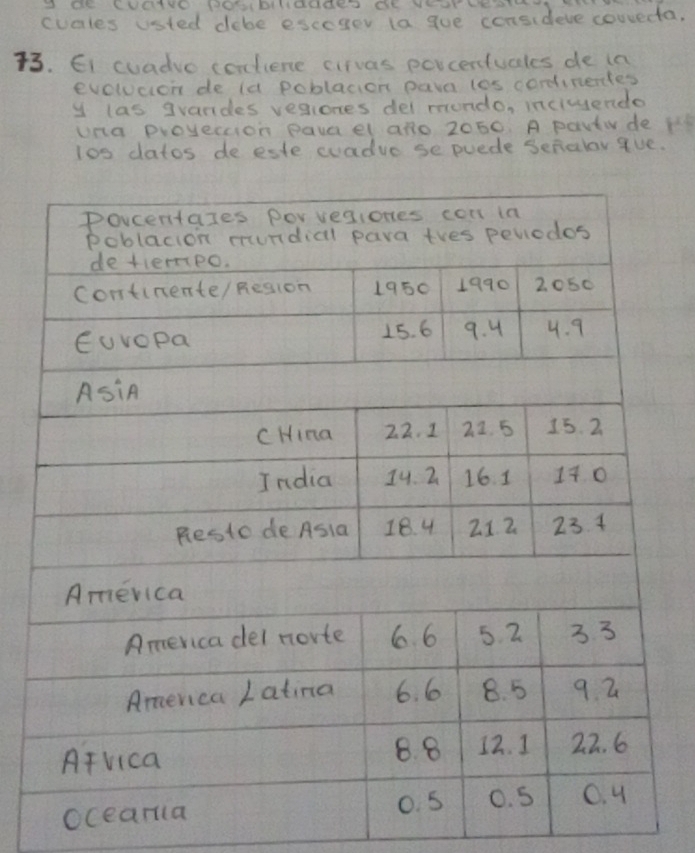 y de cuatro posibilidades de
cuales usted debe escoger la que considere correcta.
73. El cuadro contiene cifras porcentuales de la
evolución de la población para los continentes
y las grandes regiones del mundo, incluyendo
una proyección para el año 2050. A partir de
los datos de este cuadro se puede señalar que.
Porcentajes por regiones con la
población mundial para tres periodos
de tiempo.
Continente/Region 1950 1990 2050
Europa 15.6 9.4 4.9
ASiA
CHina 22.1 21.5 15.2
India 14.2 16.1 17.0
Resto de Asia 18.4 21.2 23.7
América
America del norte 6.6 5.2 3.3
America Latina 6.6 8.5 9.2
Africa 8.8 12.1 22.6
Oceania 0.5 0.5 0.4